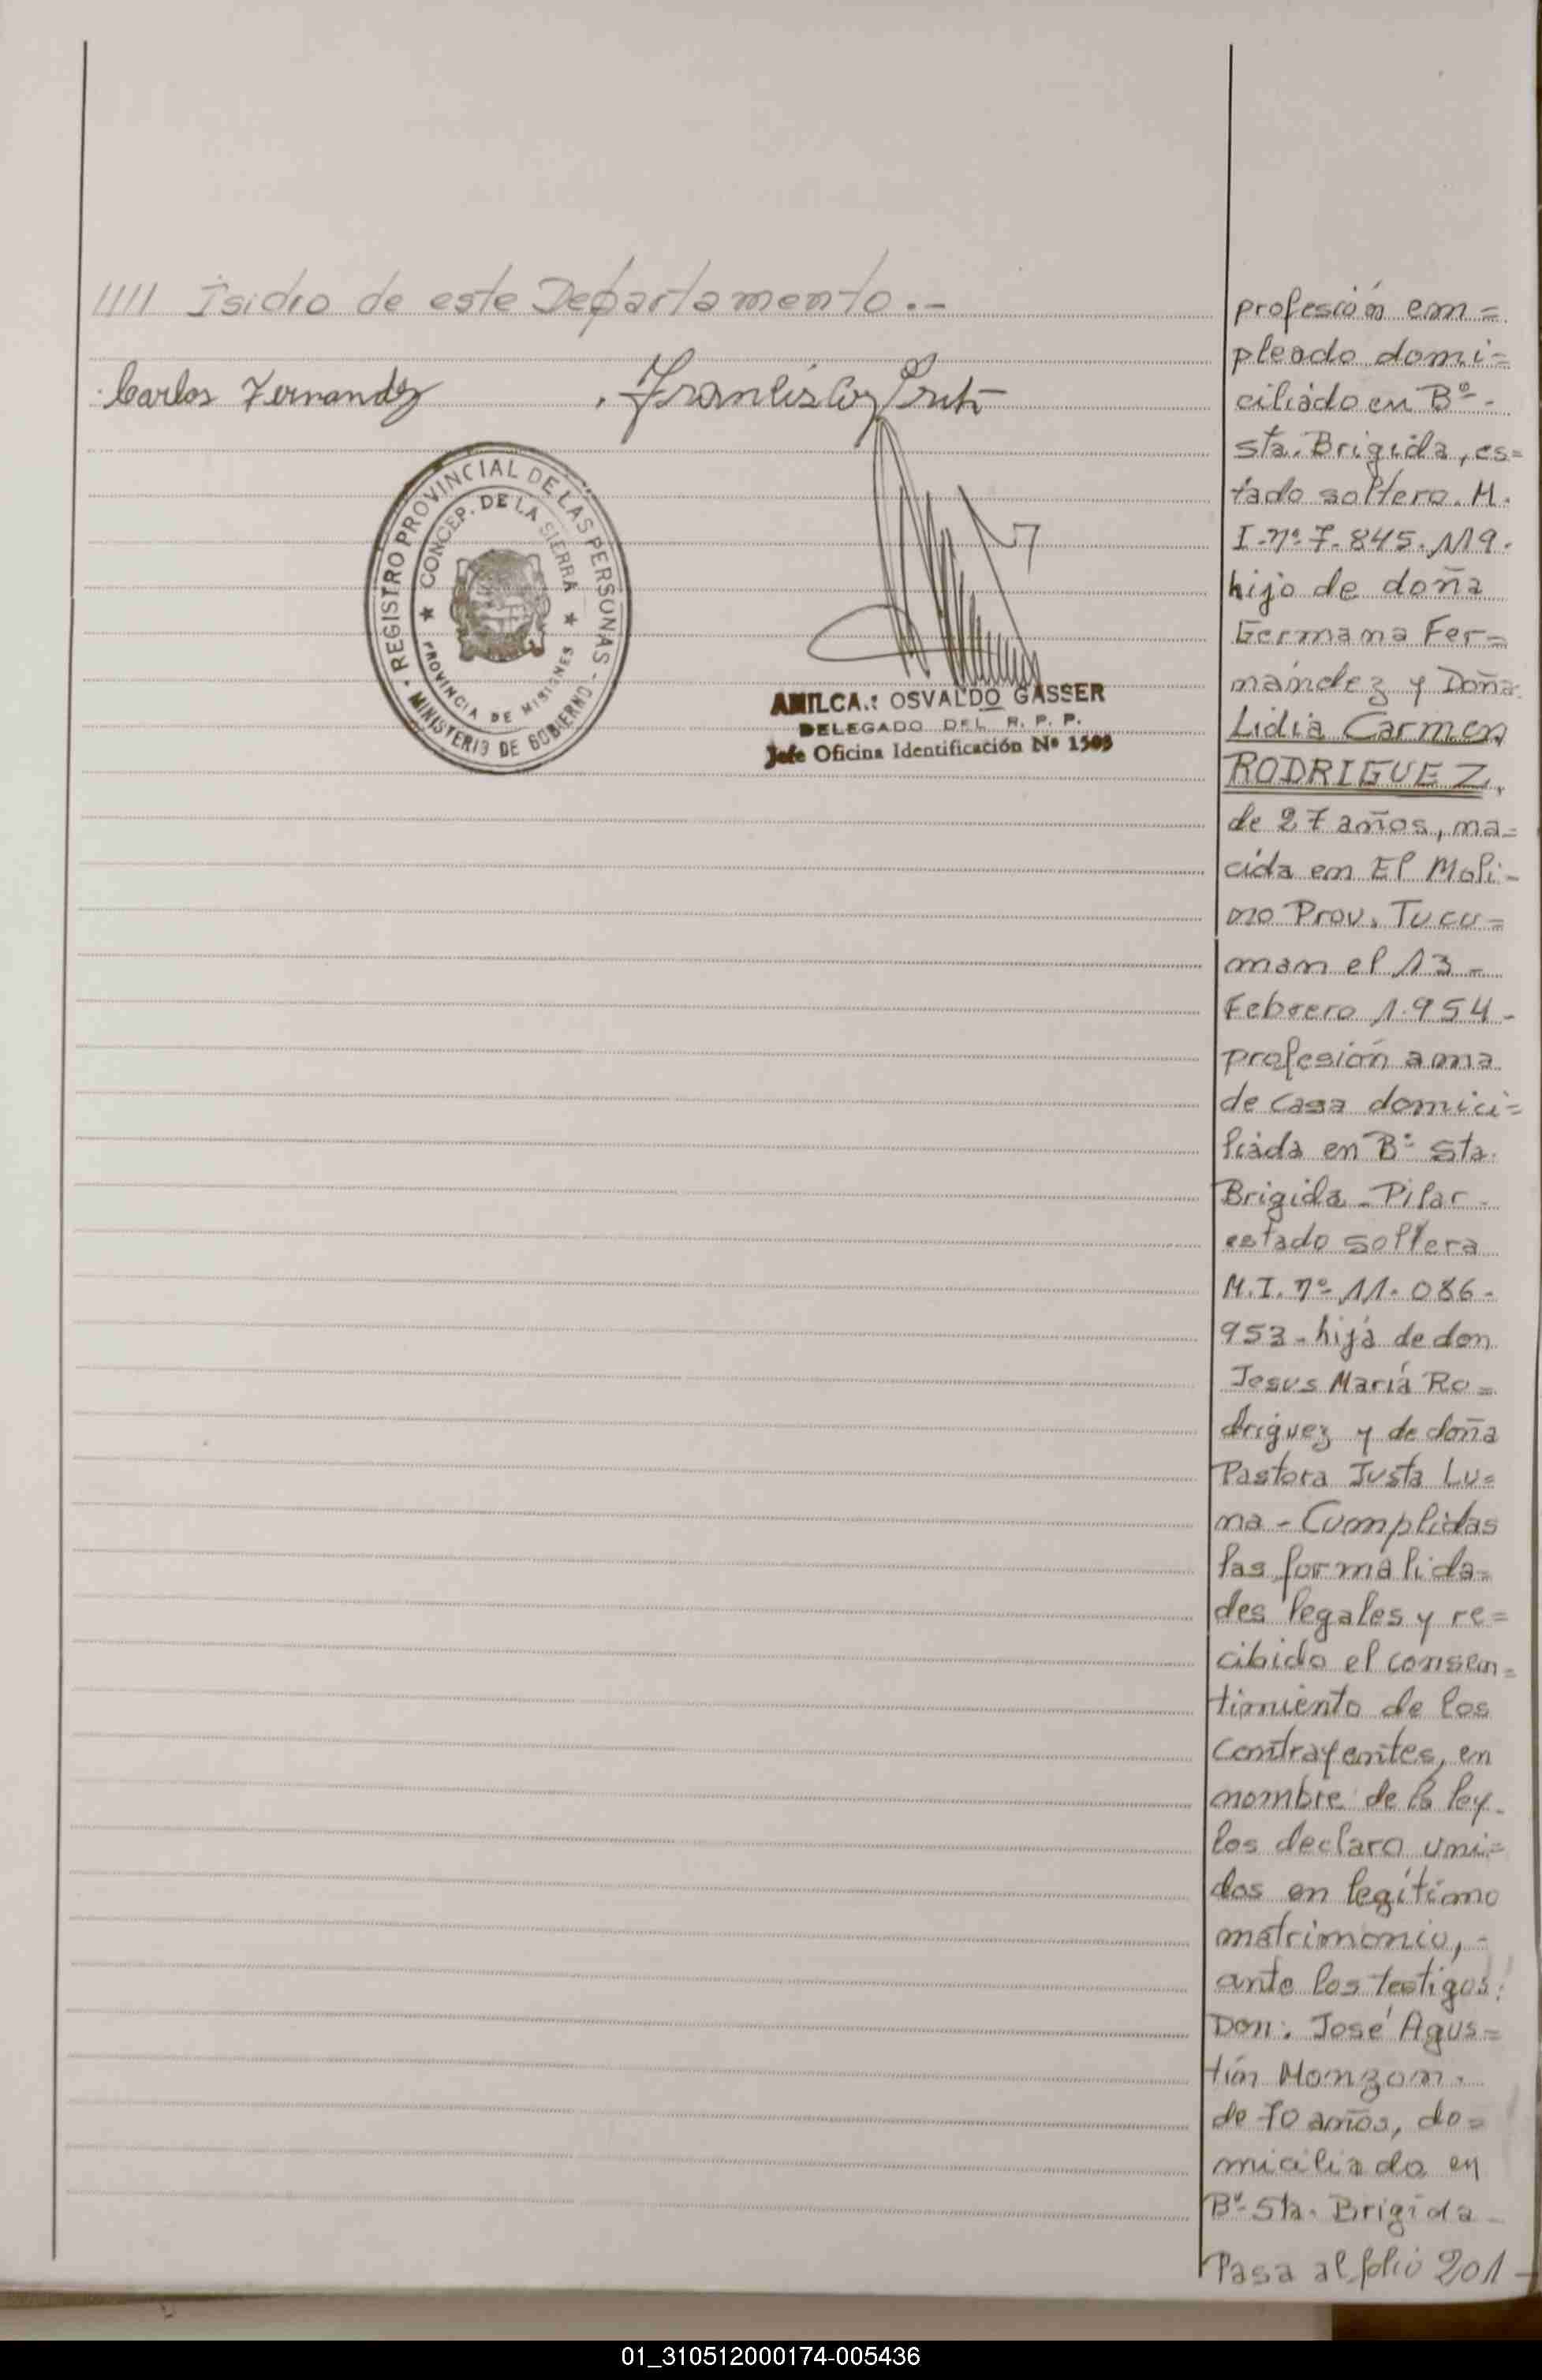 //// Isidro de este Departamento.-
Carlos Fernandez
REGISTRO PROVINCIAL DE LAS PERSONAS - MINISTERIO DE GOBIERNO -
★ CONCEP. DE LA SIERRA ★
PROVINCIA DE MISIONES
AMILCA.: OSVALDO GASSER
DELEGADO DEL R. P. P.
Jefe Oficina Identificación Nº 1503
profesión em=
pleado domi=
ciliado en Bº-
sta. Brigida, es=
tado soltero. M.
I.nº 7.845.119.
hijo de doña
Germana Fer=
nández y Doña
Lidia Carmen
RODRIGUEZ,
de 27 años, na=
cida en El Moli-
no Prov. Tucu=
man el 13-
Febrero 1.954-
profesión ama
de casa domici=
liada en Bº Sta.
Brigida - Pilar -
estado soltera
M.I. nº 11.086-
953- hija de don
Jesus María Ro=
driguez y de doña
Pastora Justa Lu=
na - Cumplidas
las formalida=
des legales y re=
cibido el consen=
timiento de los
contrayentes, en
nombre de la ley-
los declaro uni=
dos en legítimo
matrimonio,-
ante los testigos:
Don: José Agus=
tín Monzon.
de 70 años, do=
miciliado en
Bº Sta. Brigida-
Pasa al folio 201-
01_310512000174-005436